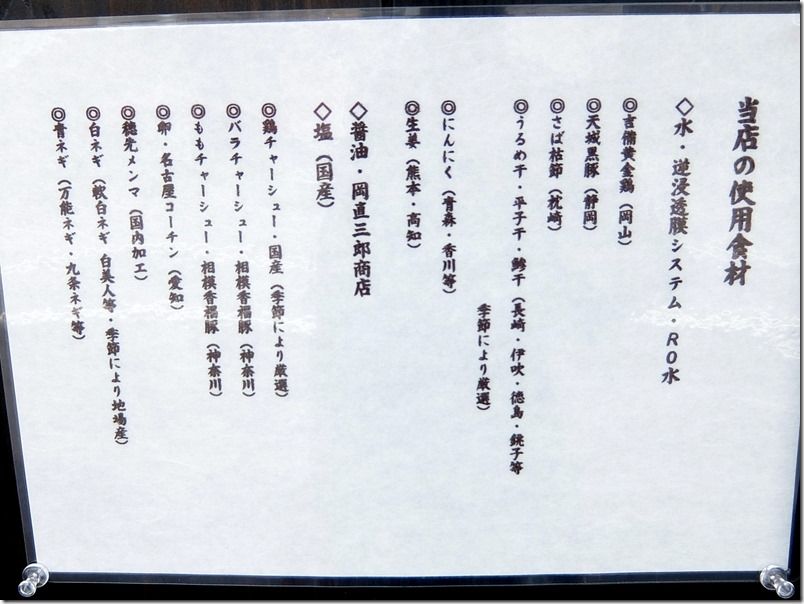 当店の使用食材
◇水・逆浸透膜システム・RO水
◎吉備黄金鶏（岡山）
◎天城黒豚（静岡）
◎さば枯節（枕崎）
◎うるめ干・平子干・鯵干（長崎・伊吹・徳島・銚子等
季節により厳選）
◎にんにく（青森・香川等）
◎生姜（熊本・高知）
◇醤油・岡直三郎商店
◇塩（国産）
◎鶏チャーシュー・国産（季節により厳選）
◎バラチャーシュー・相模香福豚（神奈川）
◎ももチャーシュー・相模香福豚（神奈川）
◎卵・名古屋コーチン（愛知）
◎穂先メンマ（国内加工）
◎白ネギ（軟白ネギ 白美人等・季節により地場産）
◎青ネギ（万能ネギ・九条ネギ等）